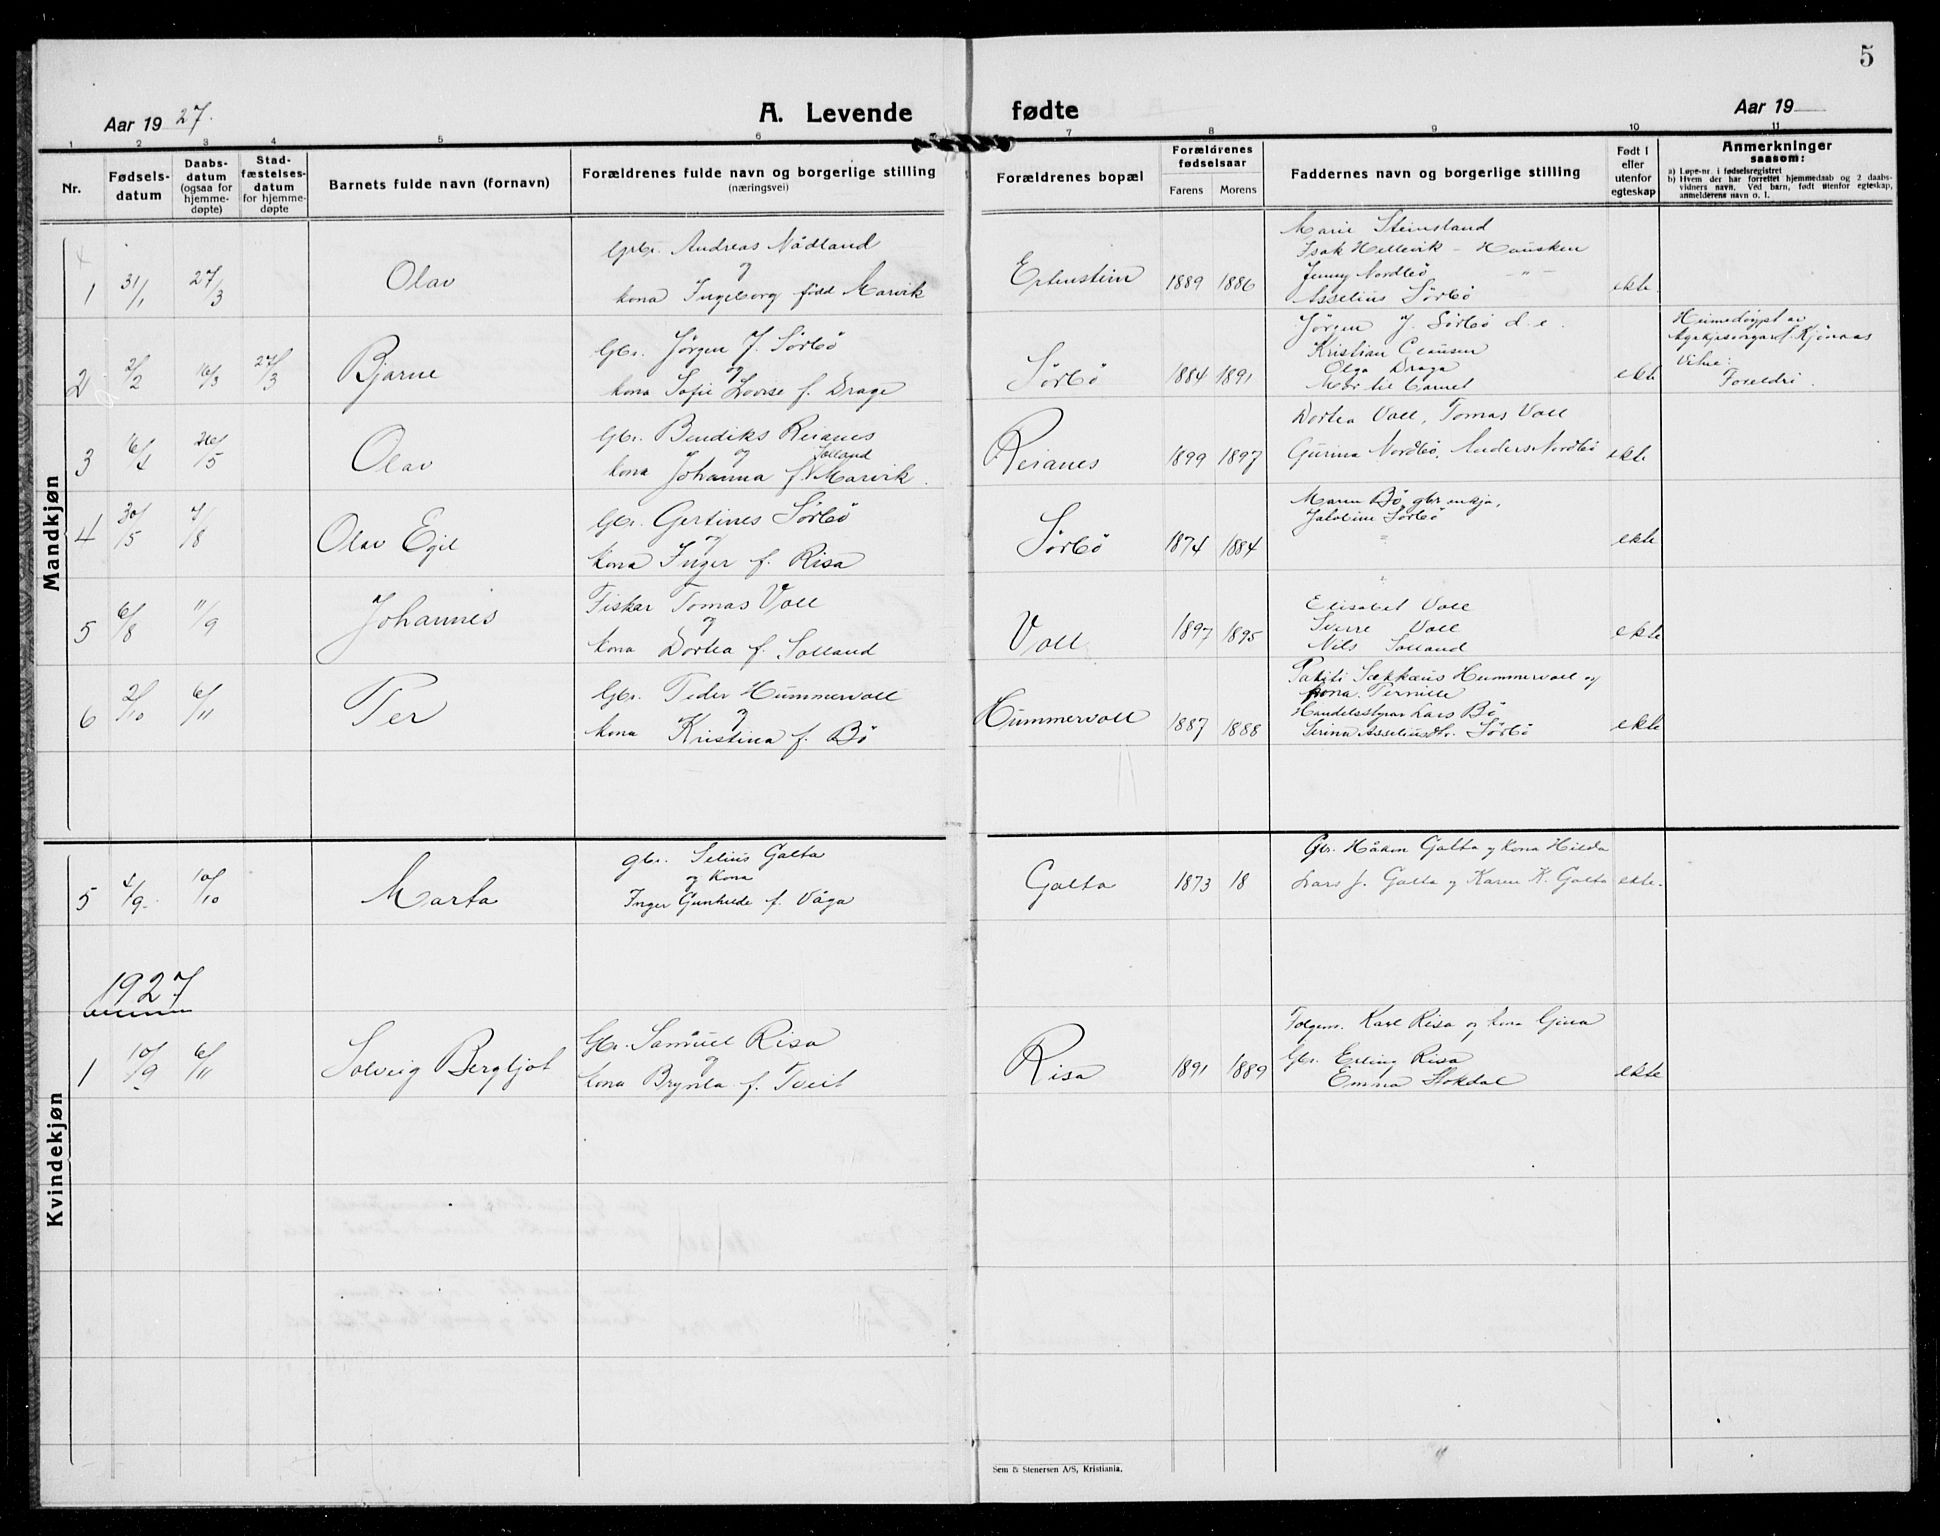 5
Aar 1927.
A. Levende
fødte
Aar 19
1 2 3 4 5 6 7 8 9 10 11
Nr.
Fødsels-
datum
Daabs-
datum
(ogsaa for
hjemme-
døpte)
Stad-
fæstelses-
datum
for hjemme-
døpte
Barnets fulde navn (fornavn)
Forældrenes fulde navn og borgerlige stilling
(næringsvei)
Forældrenes bopæl
Forældrenes
fødselsaar
Farens Morens
Faddernes navn og borgerlige stilling
Født i
eller
utenfor
egteskap
Anmerkninger
saasom:
a) Løpe-nr. i fødselsregistret
b) Hvem der har forrettet hjemmedaab og 2 daabs-
vidners navn. Ved barn, født utenfor egteskap,
anmelderens navn o. l.
Mandkjøn
1 31/1 27/3 Olav
Gbr. Andreas Nådland
og
kona Ingeborg född Marvik
Eptenstein 1889 1886
Marie Steinsland
Isak Hellevik - Hausken
Jenny Nordbö - " -
Asselius Sörbö
ekte
2 2/2 16/3 27/3 Bjarne
Gbr. Jörgen J. Sörbö
og
kona Sofie Lovise f. Drage
Sörbö 1884 1891
Jörgen J. Sörbö d.e.
Kristian Clausen
Olga Draga
Mor til barnet
ekte
Heimedöypt av
f. Kjönaas
Vitne:
Foreldri.
3 16/4 26/5 Olav
Gbr. Bendiks Reianes
og Solland
kona Johanna f. Marvik.
Reianes 1899 1897
Dortea Voll, Tomas Voll
Gurina Nordbö, Anders Nordbö
ekte
4 30/5 7/8 Olav Egil
Gbr. Gertines Sörbö
og
kona Inger f. Risa
Sörbö 1874 1884
Maren Bö, gbr. enkja,
Jakobine Sörbö
"
ekte
5 6/8 11/9 Johannes
Fiskar Tomas Voll
og
kona Dortea f. Solland
Voll 1897 1895
"
Elisabet Voll
Sverre Voll
Nils Solland
ekte
6 2/10 6/11 Per
Gbr. Peder Hummervoll
og
kona Kristina f. Bö
Hummervoll 1887 1888
Hummervoll og
kona Pernille
Handelsstyrar Lars Bö
Serina Asseliusdtr. Sörbö
ekte
Kvindekjøn
5 4/9 10/10 Marta
gbr. Selius Galta
og kona
Inger Gunhilde f. Våga
Galta 1873 18
Gbr. Håkon Galta og kona Hilda
Lars J. Galta og Karen K. Galta
ekte.
1927
1 10/9 6/11 Solveig Bergljot
Gbr. Samuel Risa
og
kona Brynla f. Tveit
Risa 1891 1889
Karl Risa og kona Gina
Gbr. Erling Risa
Emma Stokdal
ekte
Sem & Stenersen A/S, Kristiania.